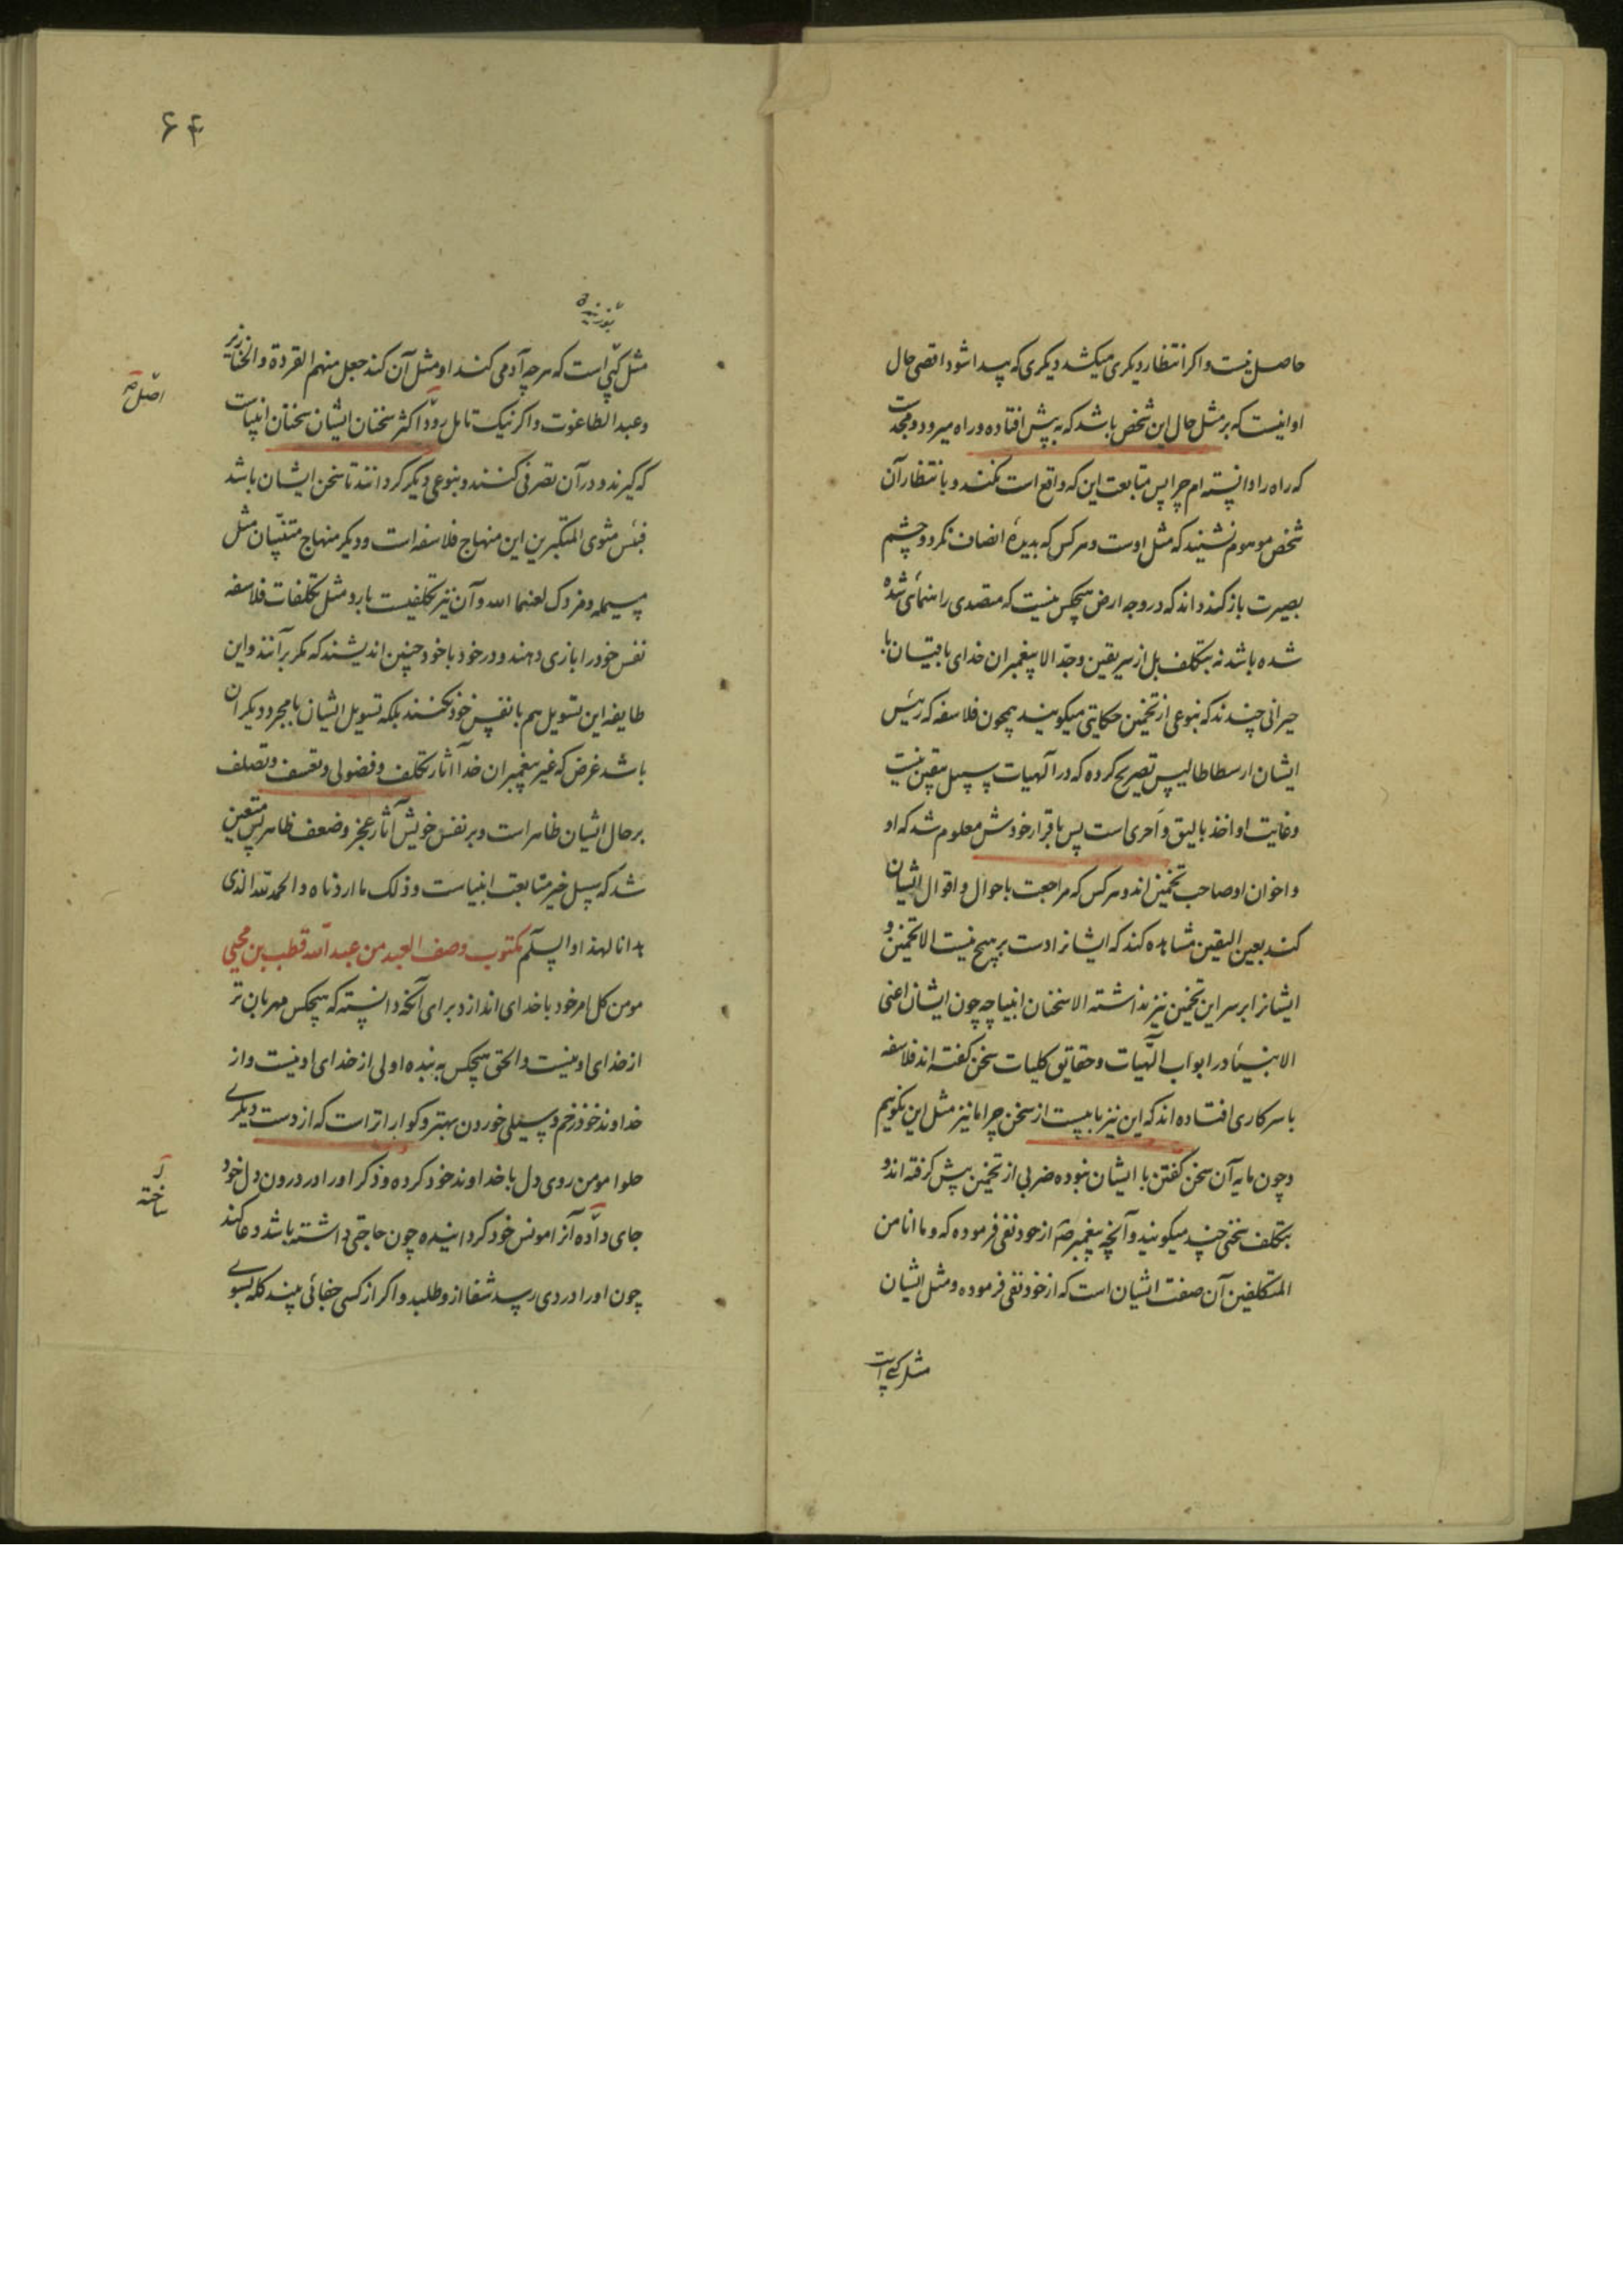 حاصل نیست و اکر انتظار دیکری میکشد دیکری که پیدا شود اقصی حال
او اینست که بر مثل حال این شخص باشد که به پیش افتاده و راه میرود و محبت
که راه را دانسته ام چرا پس متابعت این که واقع است نکنند و بانتظار آن
شخص موهوم نشیند که مثل اوست و هر کس که بدیدهٔ انصاف نکرد و چشم
بصیرت باز کند داند که در وجه ارض هیچکس نیست که متصدی راهنمائی شده
شده باشد نه بتکلف بل از سر یقین و جد الا پیغمبران خدای باقیان با
حیرانی چندند که بنوعی از تخمین حکایتی میکویند همچون فلاسفه که رئیس
ایشان ارسطاطالیس تصریح کرده که در آلهیات سبیل بیقین نیست
و غایت او اخذ بالیق و احری است پس باقرار خودش معلوم شد که او
و اخوان او صاحب تخمین اند و هر کس که مراجعت باحوال و اقوال ایشان
کند بعین الیقین مشاهده کند که ایشانرا دست بر هیچ نیست الا تخمین و
ایشانرا بر سر این تخمین نیز نداشته الا سخنان انبیا چه چون ایشان اعنی
الانبیاء در ابواب الهیات و حقایق کلیات سخن کفته اند فلاسفه
با سر کاری افتاده اند که این نیز بابیست از سخن چرا ما نیز مثل این نکوییم
و چون مایه آن سخن کفتن با ایشان نبوده ضربی از تخمین پیش کرفته اند و
بتکلف سخنی چند میکویند و آنچه پیغمبر صم از خود نفی فرموده که و ما انا من
المتکلفین آن صفت ایشان است که از خود نفی فرموده و مثل ایشان
مثل کپی است
۶۴
بوزینه
مثل کپی است که هر چه آدمی کند او مثل آن کند جعل منهم القردة و الخنازیر
و عبد الطاغوت و اکر نیک تامل رود اکثر سخنان ایشان سخنان انبیاست
اصل صه
که کیرند و در آن تصرفی کنند و بنوعی دیکر کردانند تا سخن ایشان باشد
فبئس مثوی المتکبرین این منهاج فلاسفه است و دیکر منهاج متنبیان مثل
مسیلمه و مزدک لعنهما الله و آن نیز تکلفیست بارد مثل تکلفات فلاسفه
نفس خود را بازی دهند و در خود با خود چنین اندیشند که مکر برآنند و این
طایفه این تسویل هم با نفس خود نکنند بلکه تسویل ایشان با مجرد دیکران
باشد غرض که غیر پیغمبران خدا آثار تکلف و فضولی و تعسف و تصلف
بر حال ایشان ظاهر است و بر نفس خویش آثار عجز و ضعف ظاهر پس متعین
شد که سبیل خیر متابعت انبیاست و ذلک ما اردناه و الحمد لله الذی
هدانا لهذا و السلم مکتوب وصف العبد من عبد الله قطب بن محیی
مومن کل امر خود با خدای اندازد برای آنکه دانسته که هیچکس مهربان تر
از خدای او نیست و الحق هیچکس به بنده اولی از خدای او نیست و از
خداوند خود زخم و سیلی خوردن بهتر و کواراتر است که از دست دیکری
حلوا مومن روی دل با خداوند خود کرده و ذکر او را در درون دل خود
ساخته
جای داده آنرا مونس خود کردانیده چون حاجتی داشته باشد دعا کند
چون او را دردی رسد شفا ازو طلبد و اکر از کسی جفائی بیند کله بسوی